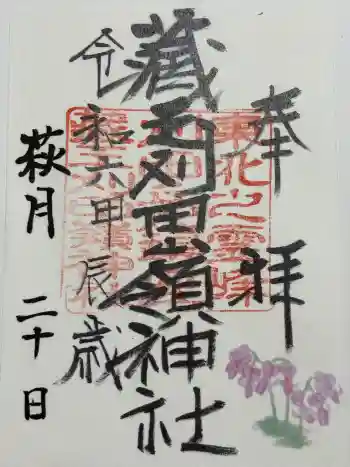 奉拝
東北之靈峰
藏王刈田嶺神社
令和六甲辰歳
萩月 二十日